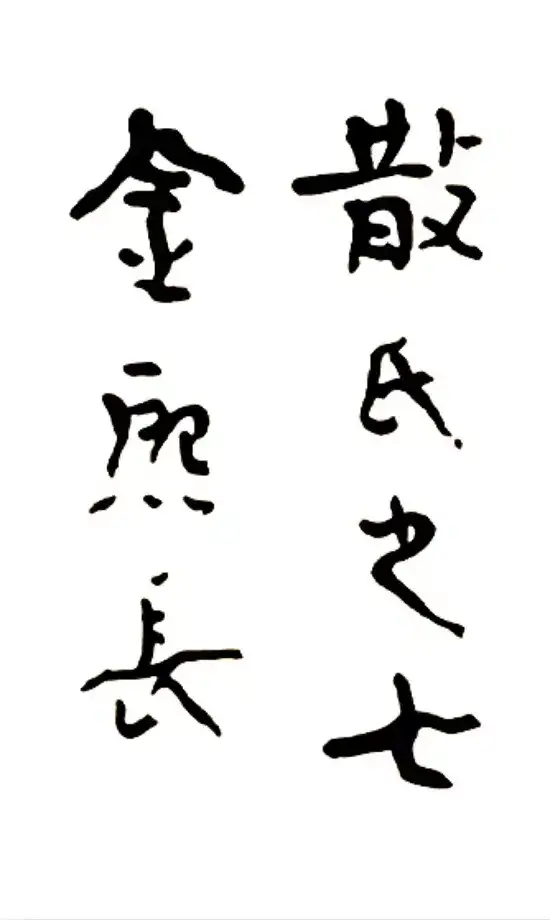 散氏之七
金熙長